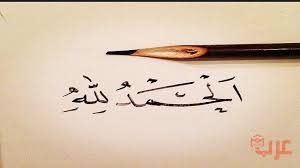 اَلْحَمْدُ لِلّٰهِ
عرب